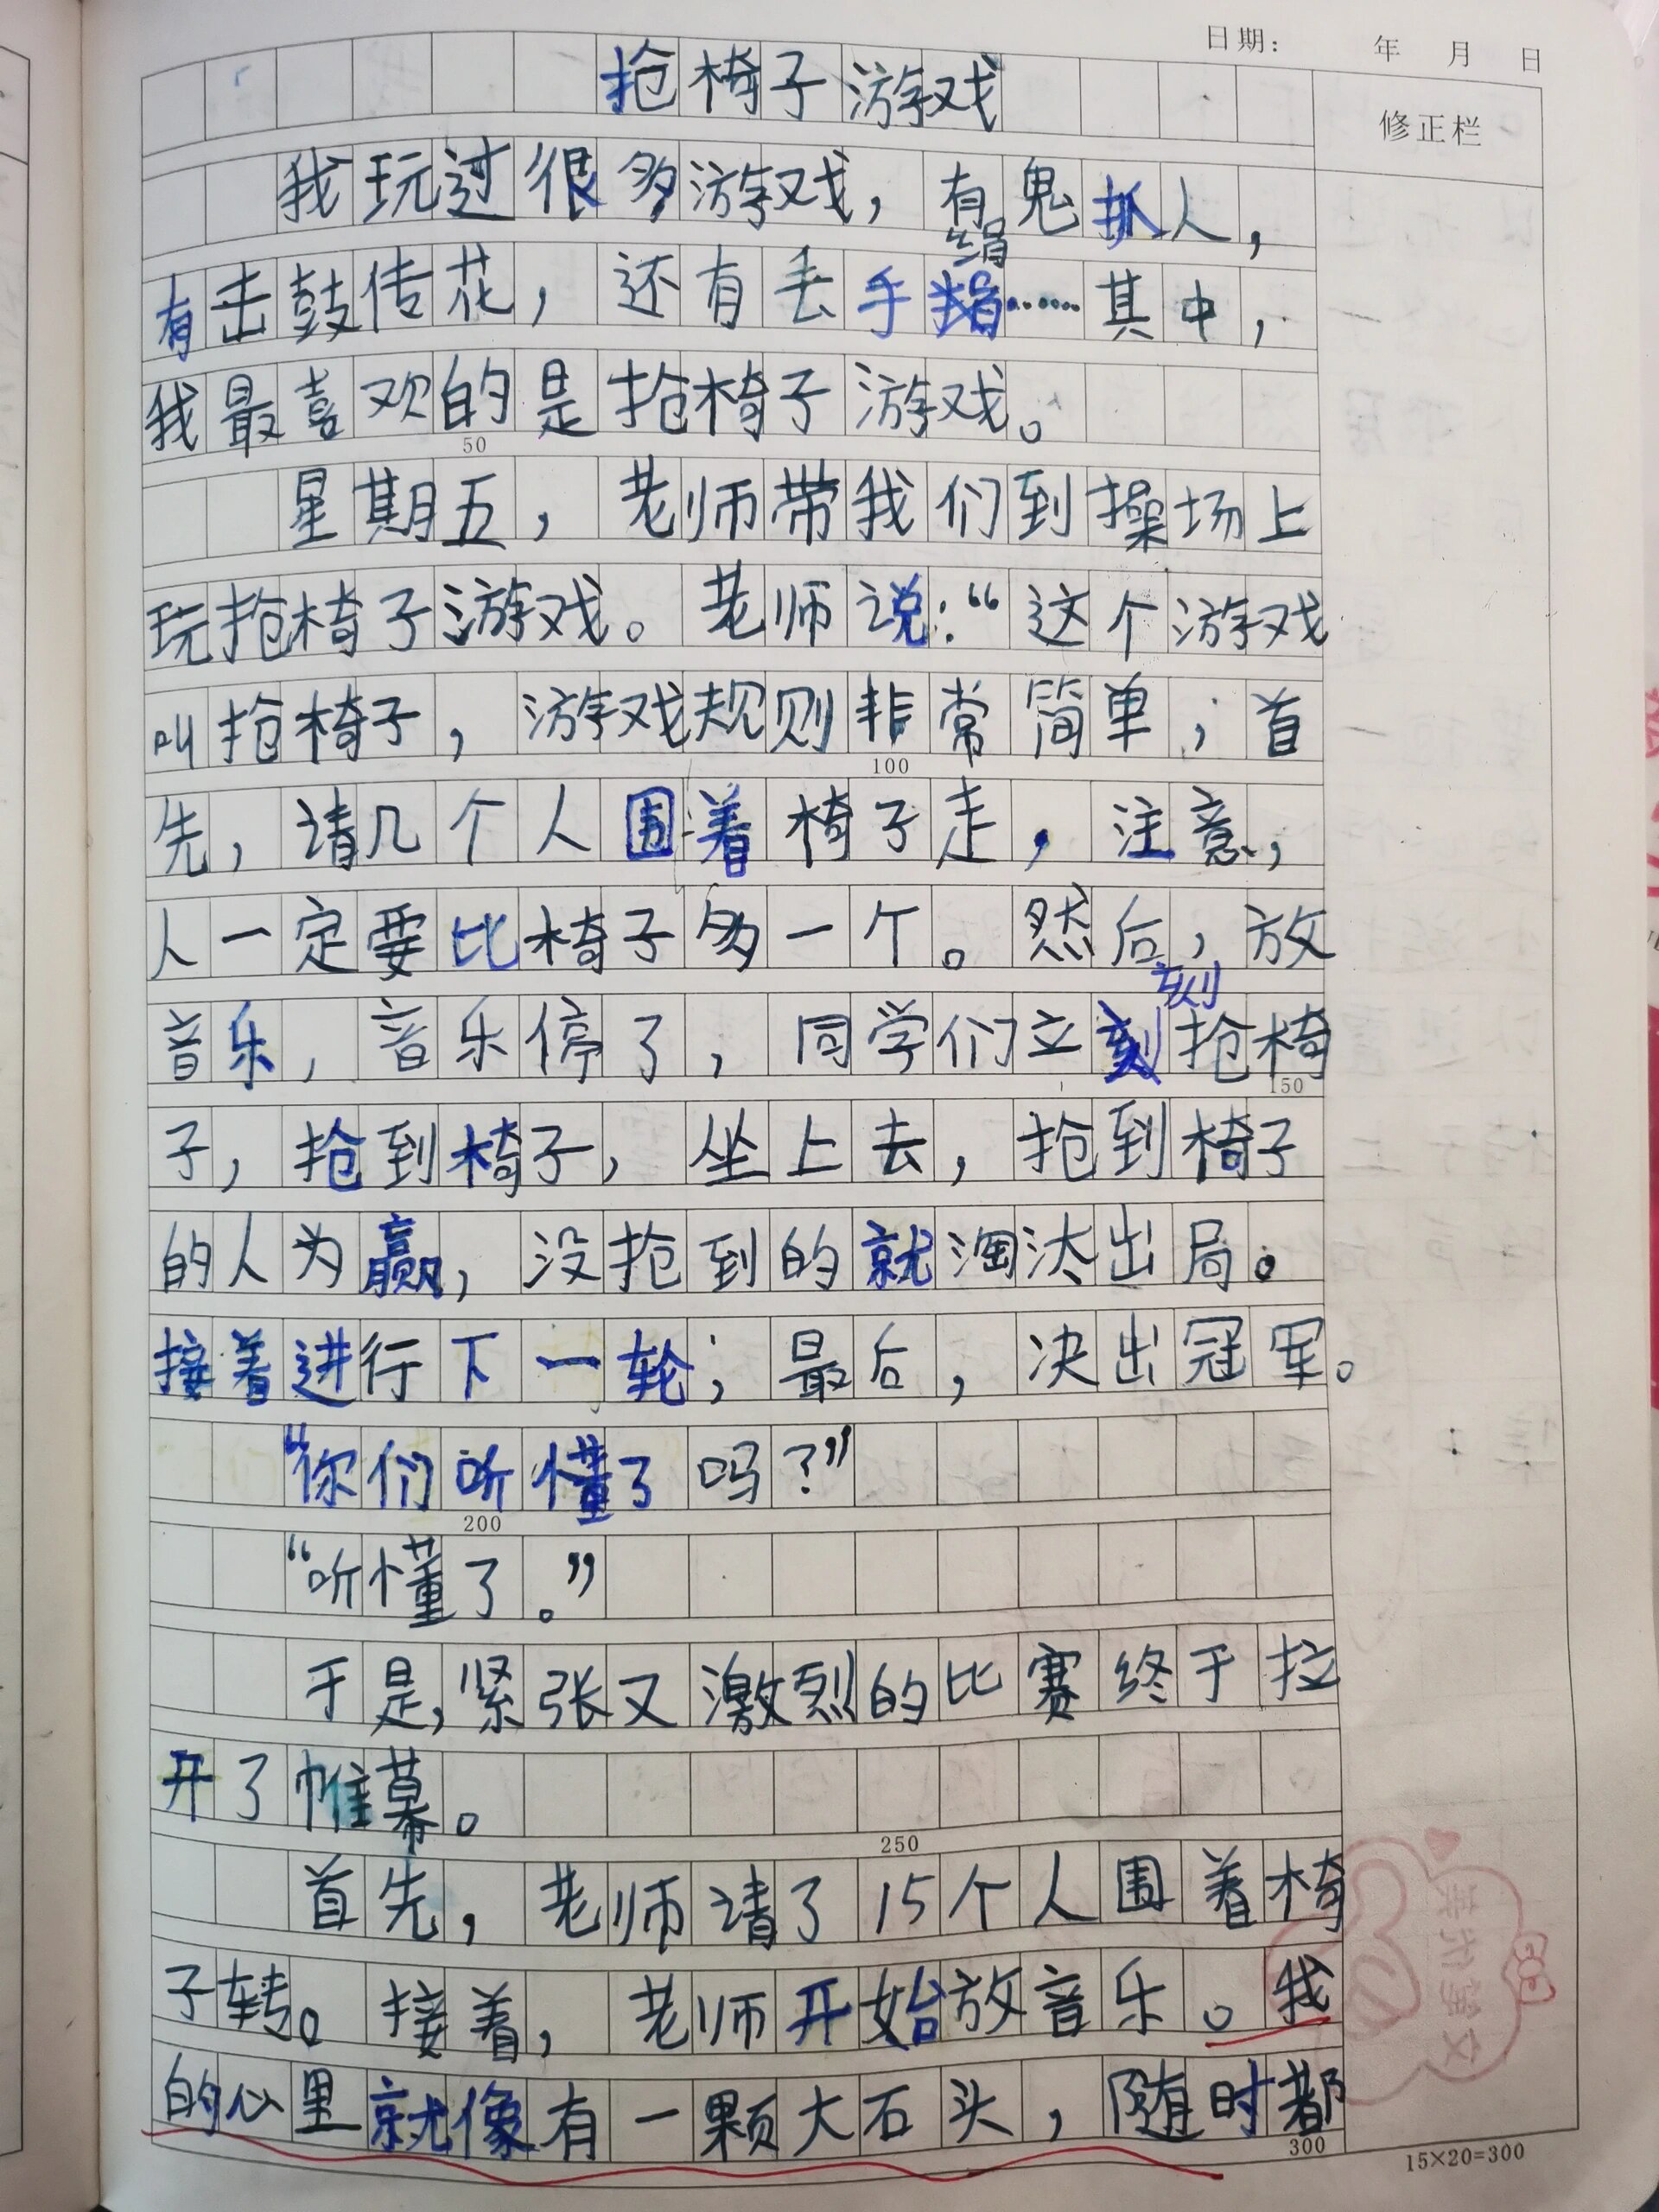 日期： 年 月 日
修正栏
抢椅子游戏
我玩过很多游戏，有鬼抓人，
绢
有击鼓传花，还有丢手……其中，
我最喜欢的是抢椅子游戏。
50
星期五，老师带我们到操场上
玩抢椅子游戏。老师说：“这个游戏
叫抢椅子，游戏规则非常简单；首
100
先，请几个人围着椅子走，注意，
人一定要比椅子多一个。然后，放
刻
音乐，音乐停了，同学们立刻抢椅
150
子，抢到椅子，坐上去，抢到椅子
的人为赢，没抢到的就淘汰出局。
接着进行下一轮；最后，决出冠军。
“你们听懂了吗？”
200
“听懂了。”
于是，紧张又激烈的比赛终于拉
开了帷幕。
250
首先，老师请了15个人围着椅
子转。接着，老师开始放音乐。我
的心里就像有一颗大石头，随时都
300
15×20=300